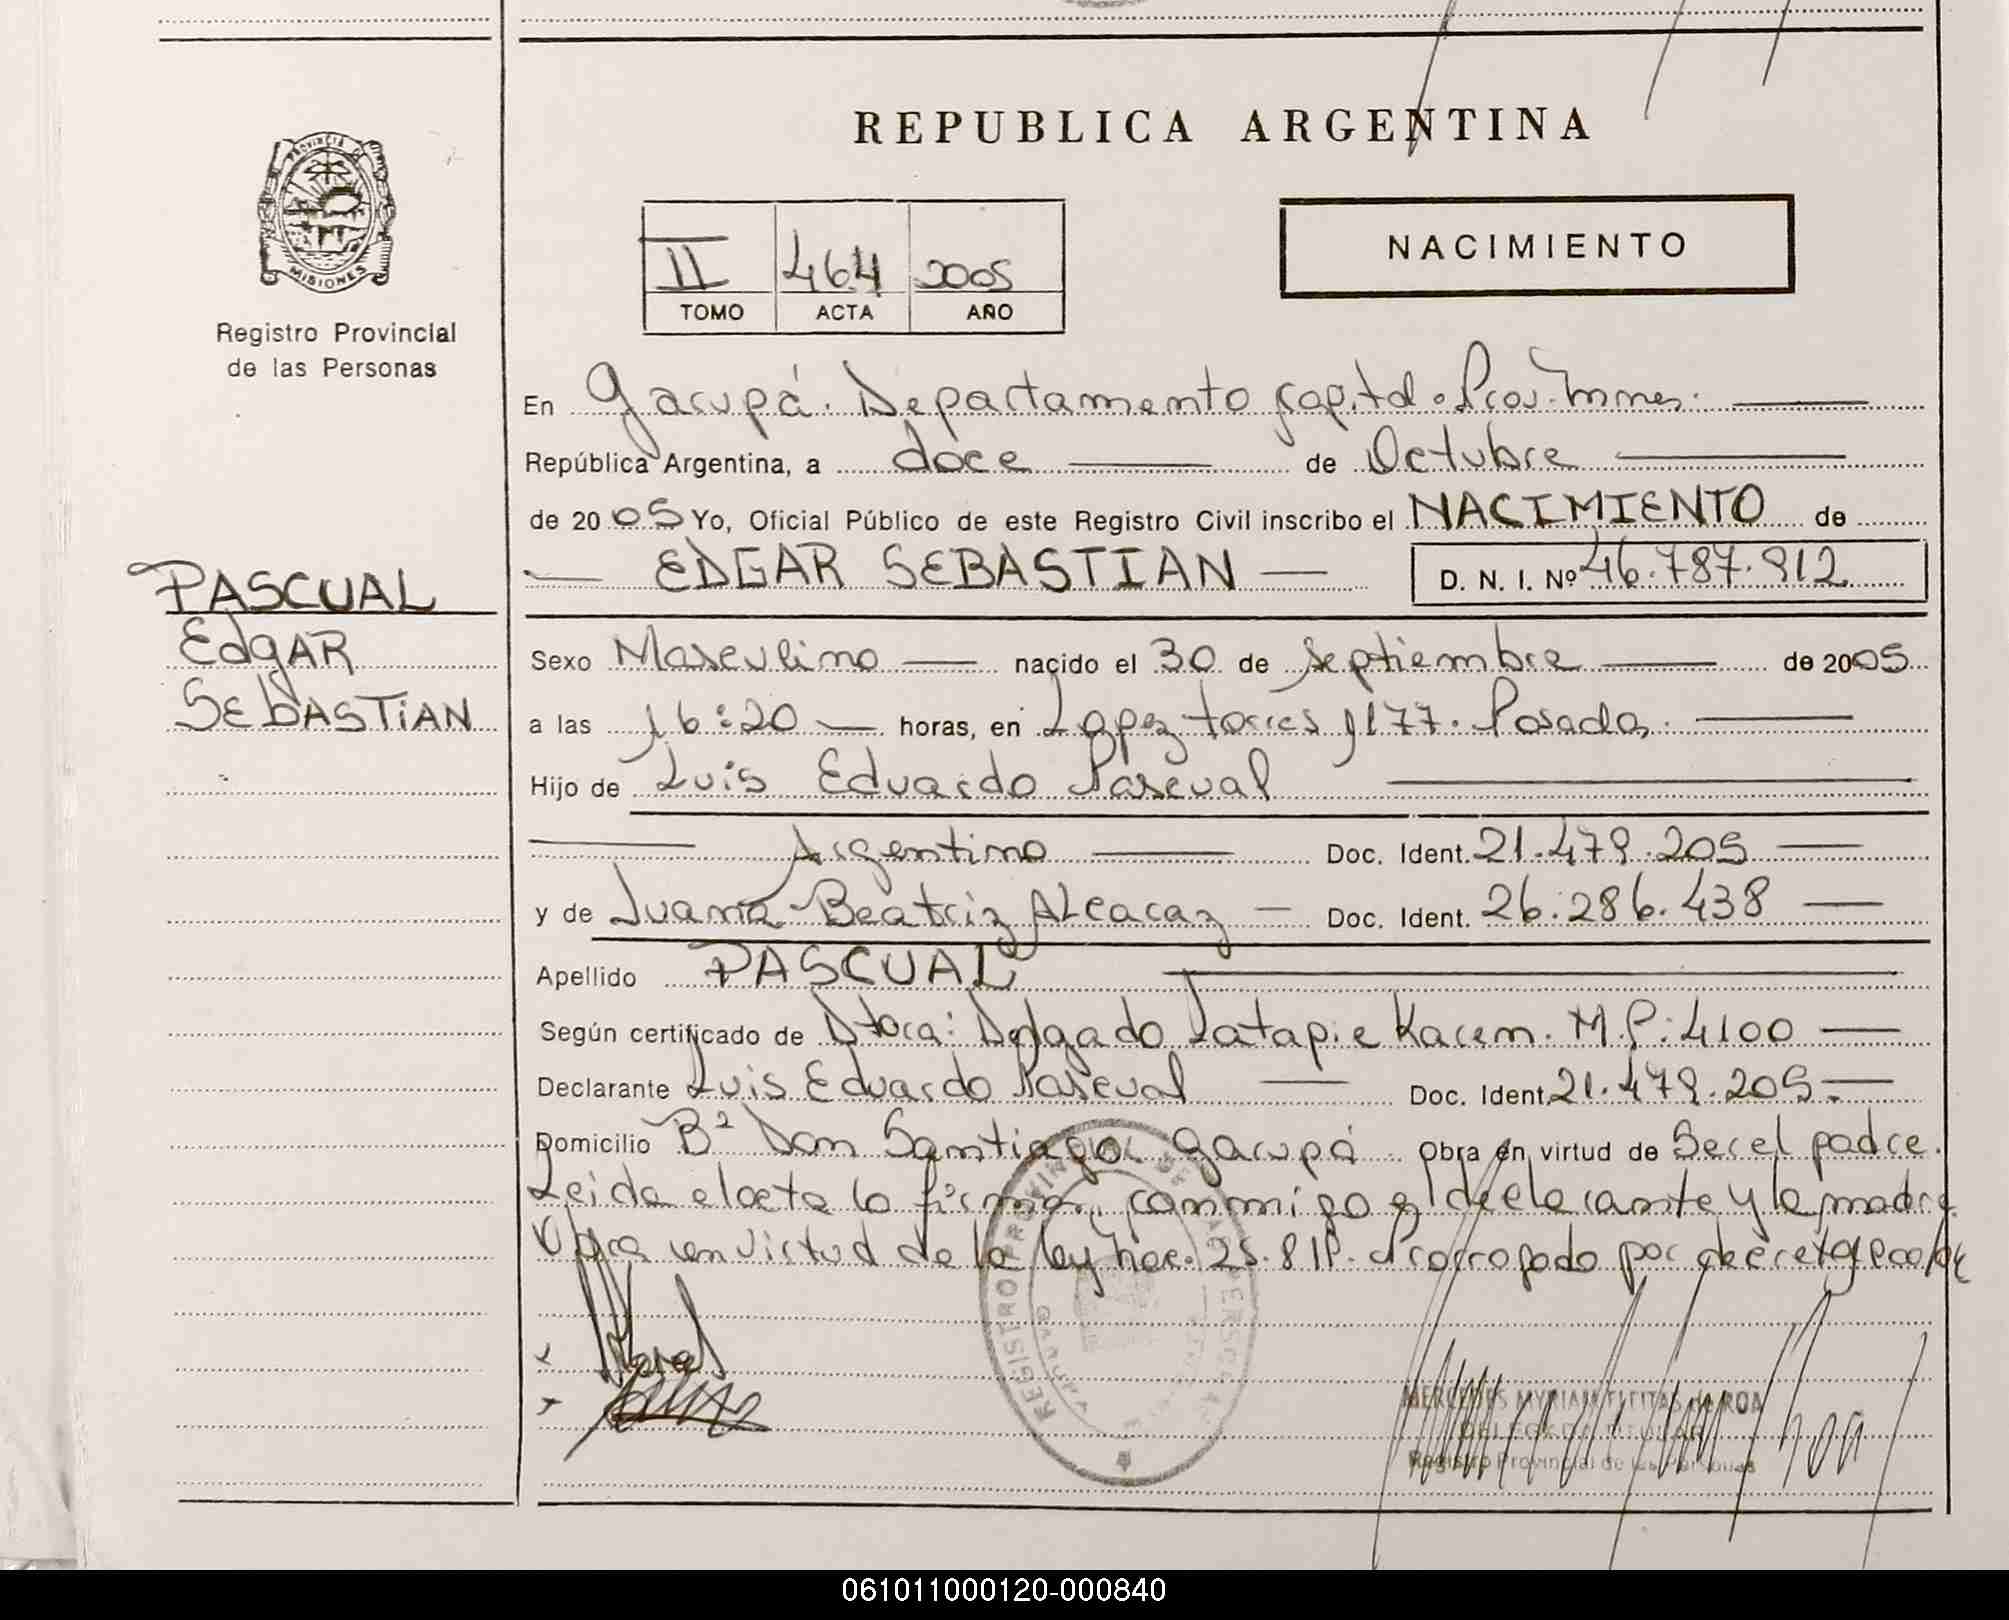 REPUBLICA ARGENTINA
PROVINCIA DE
MISIONES
Registro Provincial
de las Personas
NACIMIENTO
II 464 2005
TOMO ACTA AÑO
En Garupá. Departamento Capital. Prov. Mnes.
República Argentina, a doce de Octubre
de 2005 Yo, Oficial Público de este Registro Civil inscribo el NACIMIENTO de
EDGAR SEBASTIAN D. N. I. Nº 46.787.912
PASCUAL
EdgAR
SEbASTiAN
Sexo Masculino nacido el 30 de Septiembre de 2005
a las 16:20 horas, en Lopez torres 1177. Posadas.
Hijo de Luis Eduardo Pascual
Argentino Doc. Ident. 21.479.205
y de Juana Beatriz Alcaraz Doc. Ident. 26.286.438
Apellido PASCUAL
Según certificado de Dtora: Delgado Latapie Karem. M.P: 4100
Declarante Luis Eduardo Pascual Doc. Ident. 21.479.205
Domicilio Bº Don Santiago Garupá. Obra en virtud de Ser el padre.
Leida el acta la firman conmigo el declarante y la madre.
Obra en virtud de la ley nac. 25.819. Prorrogado por decreto
REGISTRO PROVINCIAL DE LAS PERSONAS
GARUPA
MERCEDES MYRIAM FLEITAS de ROA
DELEGADA TITULAR
Registro Provincial de las Personas
061011000120-000840